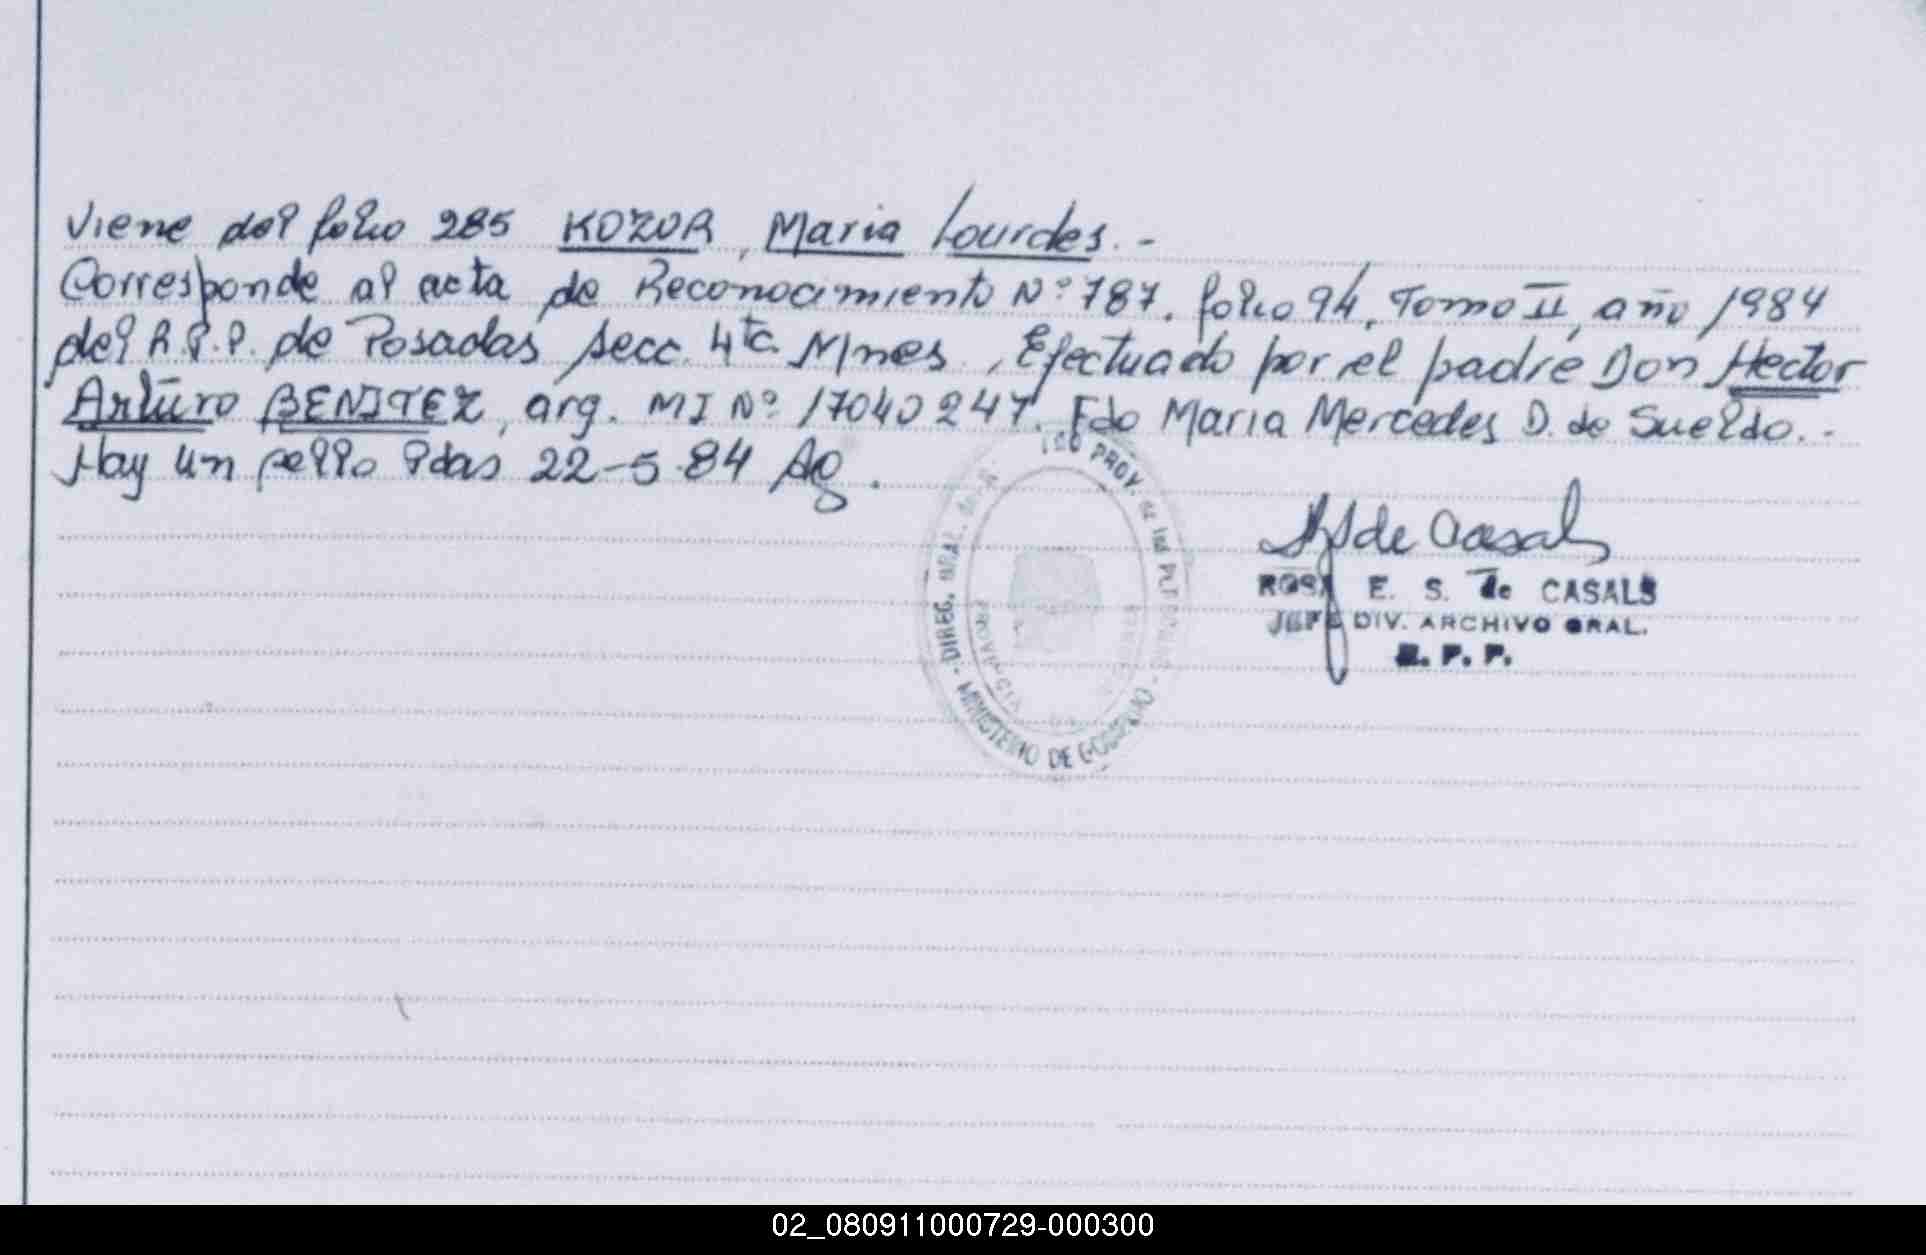 Viene del folio 285 KOZUR, Maria Lourdes.-
Corresponde al acta de Reconocimiento Nº 787. folio 94, Tomo II, año 1984
del R.P.P. de Posadas secc. 4ta Mnes., Efectuado por el padre Don Hector
Arturo BENITEZ, arg. MI Nº 17040247. Fdo Maria Mercedes D. de Sueldo.-
Hay un sello Pdas 22-5-84 Ag.
DIREG. GRAL. PROV. MINISTERIO DE GOBIERNO
de Casals
ROSA E. S. de CASALS
JEFE DIV. ARCHIVO GRAL.
R. P. P.
02_080911000729-000300